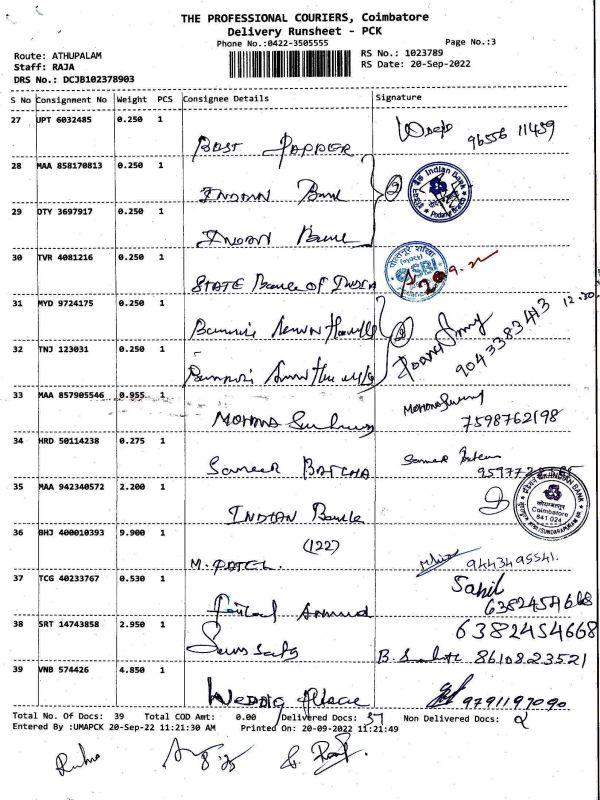 THE PROFESSIONAL COURIERS, Coimbatore
Delivery Runsheet - PCK
Phone No.:0422-3505555 Page No.:3
Route: ATHUPALAM RS No.: 1023789
Staff: RAJA RS Date: 20-Sep-2022
DRS No.: DCJB102378903
S No Consignment No Weight PCS Consignee Details Signature
27 UPT 6032485 0.250 1 96556 11459
28 MAA 858170813 0.250 1 INDIAN Bank Indian Bank
29 DTY 3697917 0.250 1 INDIAN Bank
30 TVR 4081216 0.250 1 STATE Bank of INDIA SBI
31 MYD 9724175 0.250 1 9043383413 12.30
32 TNJ 123031 0.250 1
33 MAA 857905546 0.955 1 MOHANA 7598762198
34 HRD 50114238 0.275 1 Sameer BATCHA Sameer
35 MAA 942340572 2.200 1 INDIAN Bank INDIAN BANK Coimbatore 641 024
36 BHJ 400010393 9.900 1 (122) M. PATEL 9443495541
37 TCG 40233767 0.530 1 Ahmed Sahil 6382454668
38 SRT 14743858 2.950 1 63824S4668
B. 8610823521
39 VNB 574426 4.850 1 9791197090
Total No. Of Docs: 39 Total COD Amt: 0.00 Delivered Docs: 37 Non Delivered Docs: 2
Entered By :UMAPCK 20-Sep-22 11:21:30 AM Printed On: 20-09-2022 11:21:49